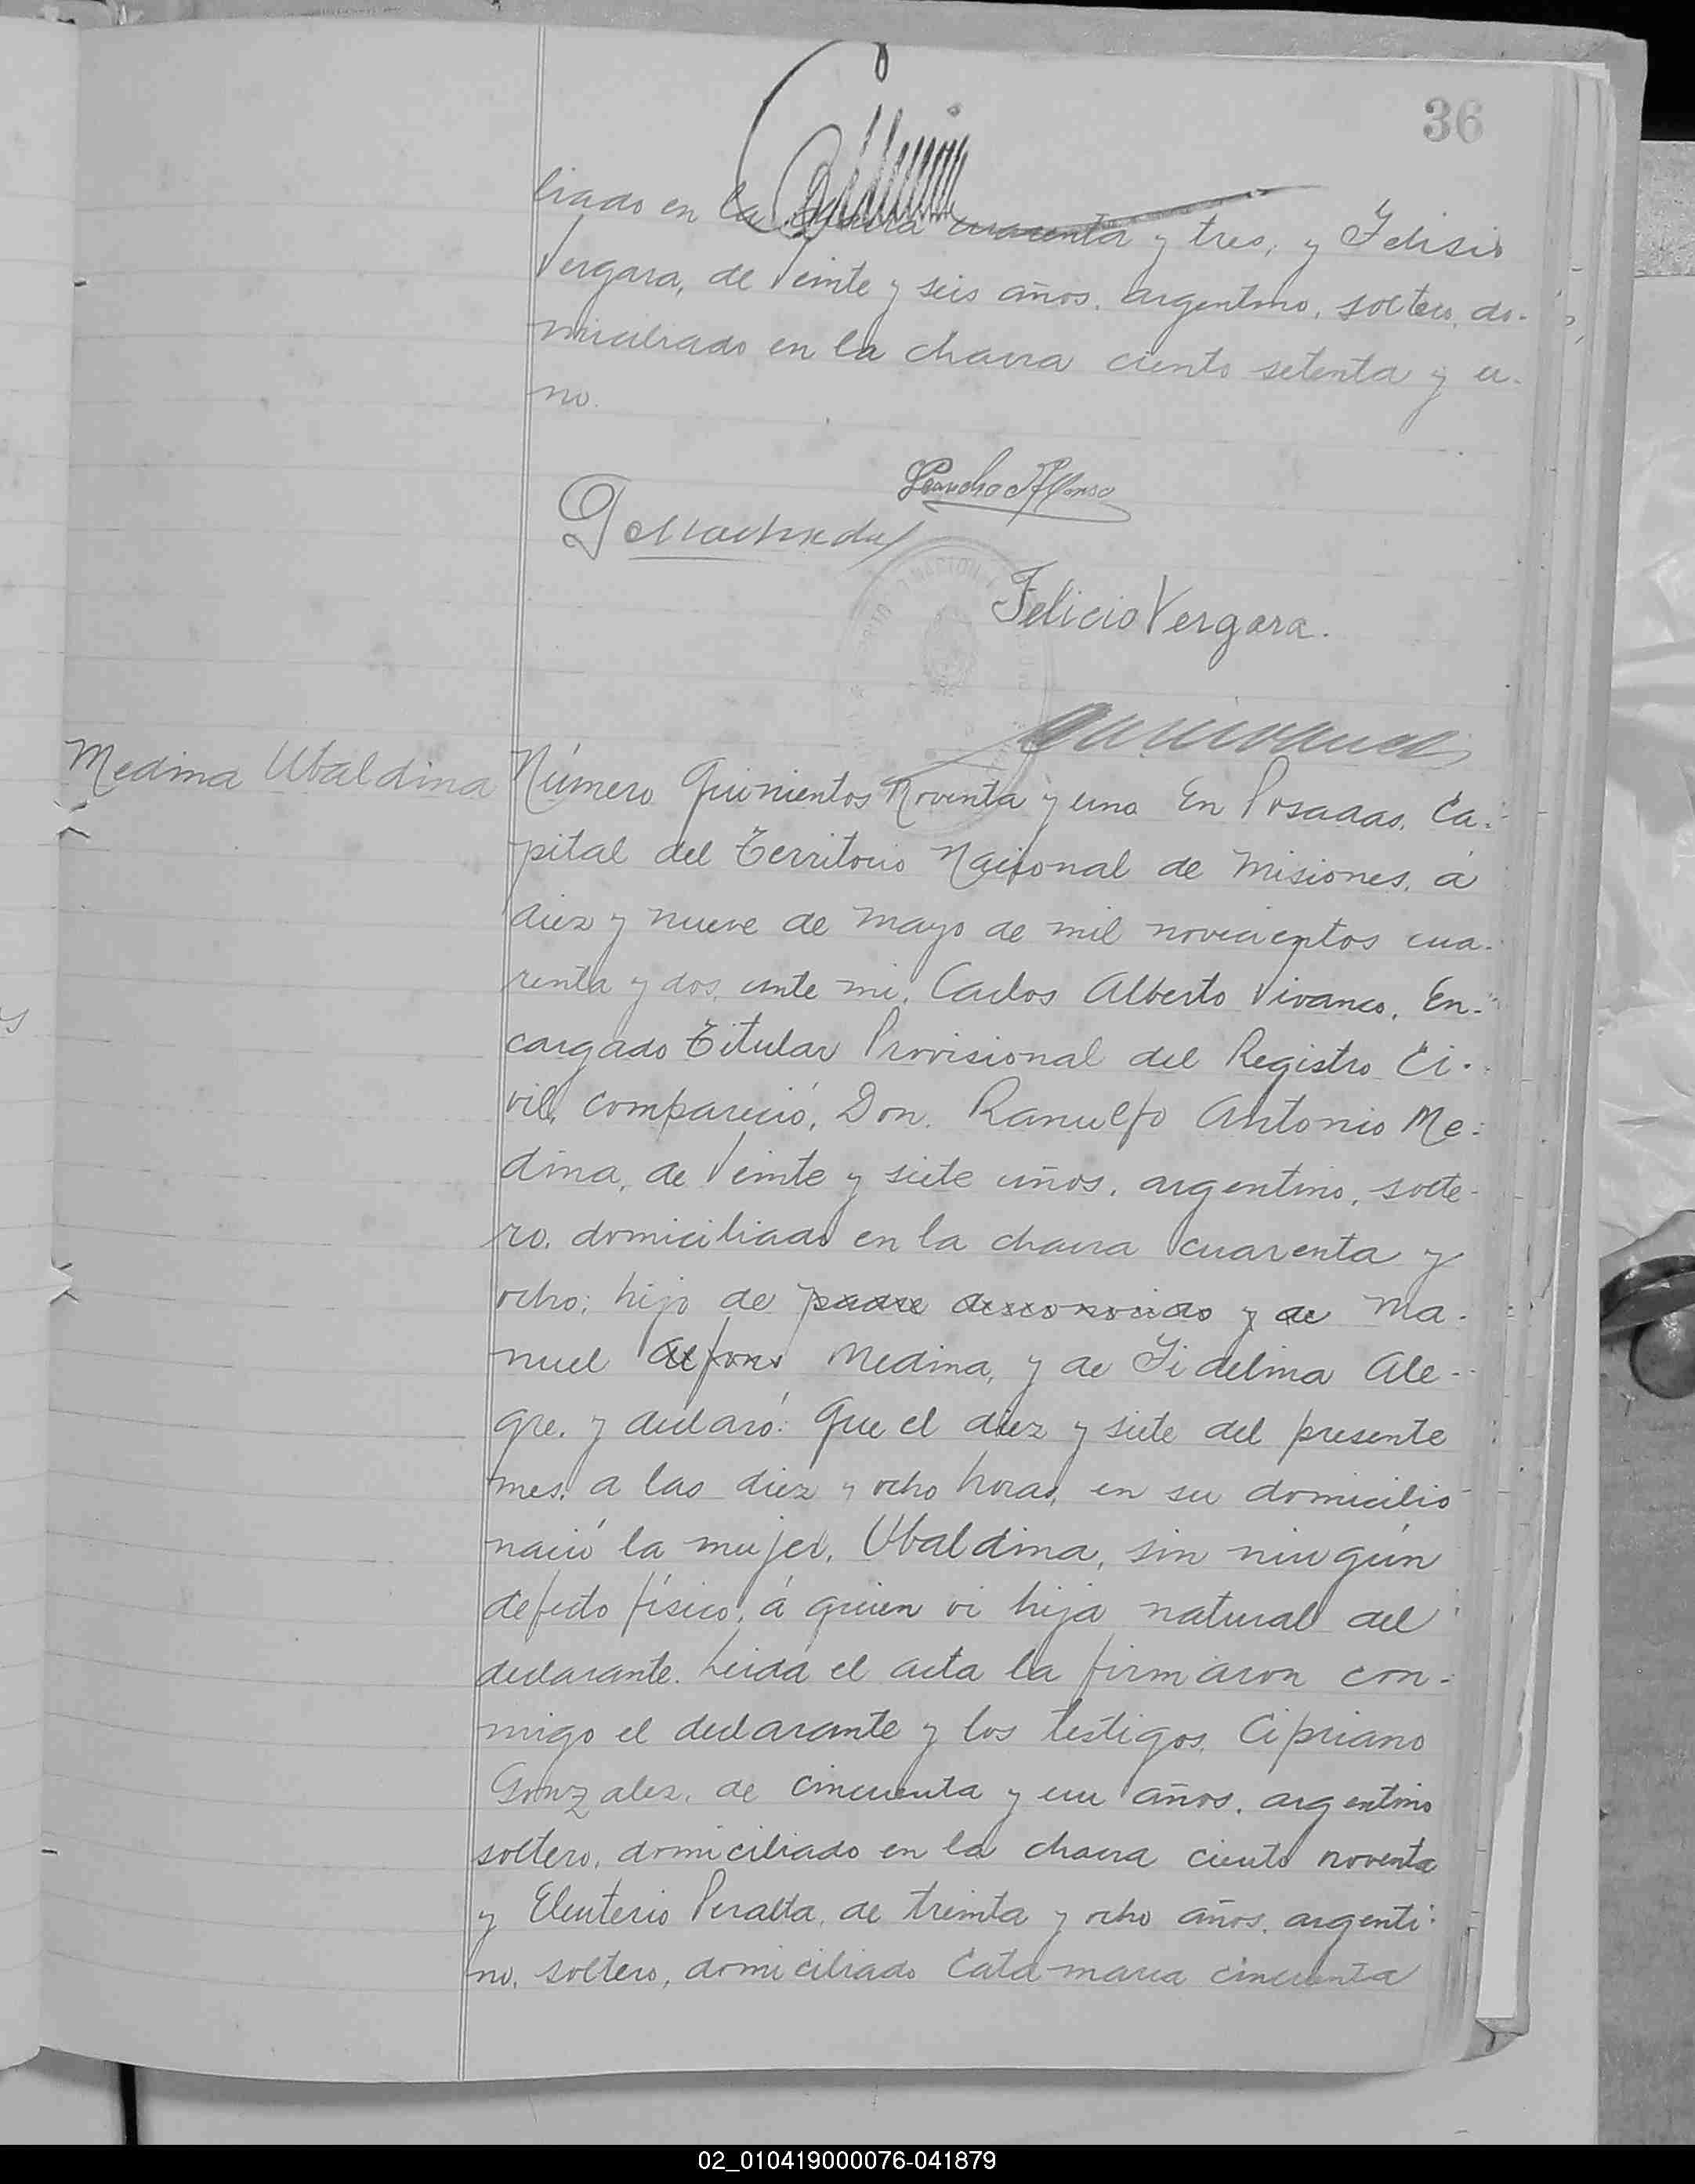 36
liado en la chacra cuarenta y tres, y Felisio
Vergara, de Veinte y seis años, argentino, soltero, do-
miciliado en la chacra ciento setenta y u-
no.
Felicio Vergara.
Medina Ubaldina
Número Quinientos Noventa y uno En Posadas, Ca-
pital del Territorio Nacional de Misiones, á
diez y nueve de Mayo de mil novecientos cua-
renta y dos, ante mi, Carlos Alberto Vivanco, En-
cargado Titular Provisional del Registro Ci-
vil, compareció, Don, Ranulfo Antonio Me-
dina, de Veinte y siete años, argentino, solte-
ro, domiciliado en la chacra cuarenta y
ocho; hijo de padre desconocido y de Ma-
nuel Alfonso Medina, y de Fidelina Ale-
gre, y declaró: Que el diez y siete del presente
mes, a las diez y ocho horas, en su domicilio
nació la mujer, Ubaldina, sin ningún
defecto físico, á quien vi hija natural del
declarante. Leida el acta la firmaron con-
migo el declarante y los testigos, Cipriano
Gonzalez, de cincuenta y un años, argentino
soltero, domiciliado en la chacra ciento noventa
y Eleuterio Peralta, de treinta y ocho años, argenti-
no, soltero, domiciliado Catamarca cincuenta
02_010419000076-041879